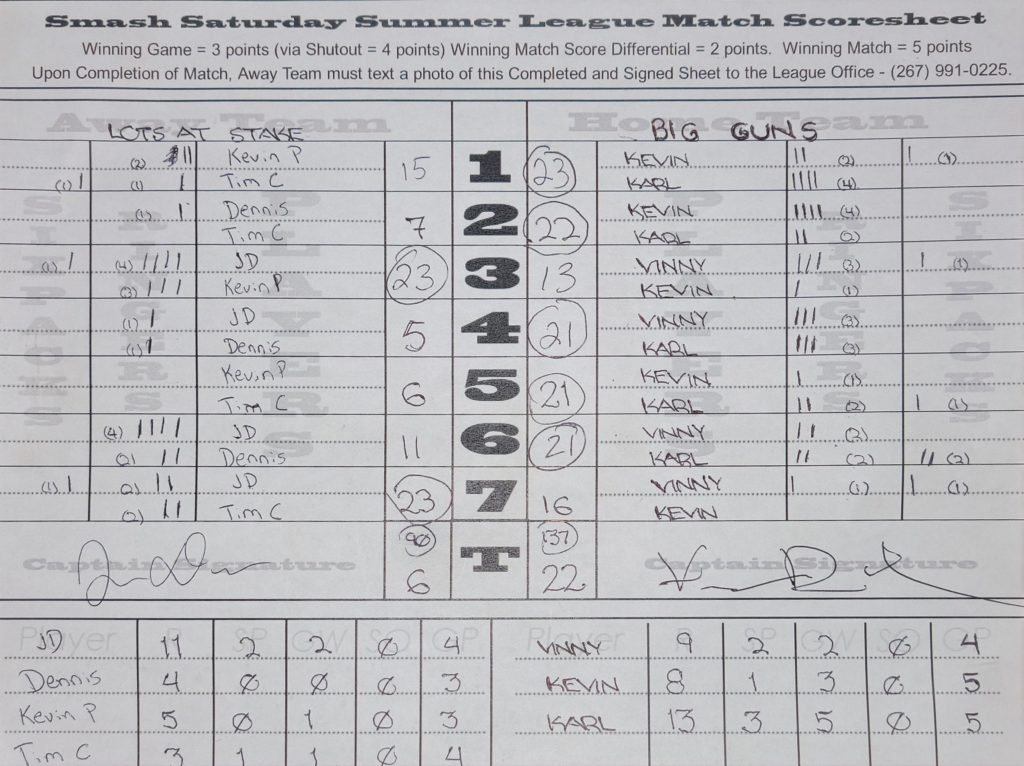 Smash Saturday Summer League Match Scoresheet
Winning Game = 3 points (via Shutout = 4 points) Winning Match Score Differential = 2 points. Winning Match = 5 points
Upon Completion of Match, Away Team must text a photo of this Completed and Signed Sheet to the League Office - (267) 991-0225.
Away Team Home Team
LOTS AT STAKE BIG GUNS
(2) II Kevin P 15 1 23 KEVIN II (2) I (1)
(1) I (1) I Tim C KARL IIII (4)
(1) I Dennis 7 2 22 KEVIN IIII (4)
Tim C KARL II (2)
(1) I (4) IIII JD 23 3 13 VINNY III (3) I (1)
(3) III Kevin P KEVIN I (1)
(1) I JD 5 4 21 VINNY III (3)
(1) I Dennis KARL III (3)
Kevin P 6 5 21 KEVIN I (1)
Tim C KARL II (2) I (1)
(4) IIII JD 11 6 21 VINNY II (2)
(2) II Dennis KARL II (2) II (2)
(1) I (2) II JD 23 7 16 VINNY I (1) I (1)
(2) II Tim C KEVIN
SIXPACKS RINGERS PLAYERS PLAYERS RINGERS SIXPACKS
90 T 137
Captain Signature 6 22 Captain Signature
Player R SP GW SO GP Player R SP GW SO GP
JD 11 2 2 0 4 VINNY 9 2 2 0 4
Dennis 4 0 0 0 3 KEVIN 8 1 3 0 5
Kevin P 5 0 1 0 3 KARL 13 3 5 0 5
Tim C 3 1 1 0 4